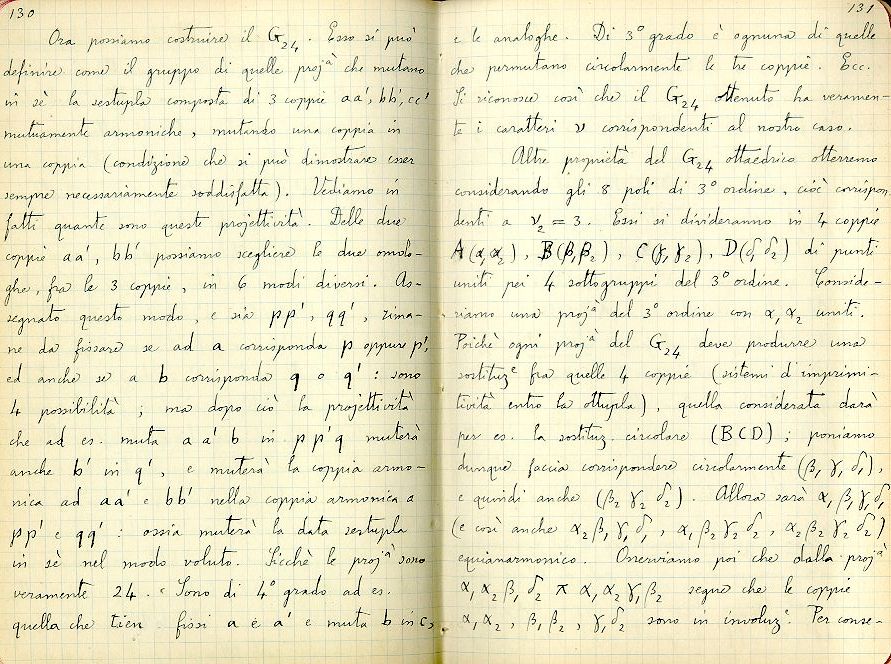 130
Ora possiamo costruire il G₂₄. Esso si può
definire come il gruppo di quelle projᵃ̀ che mutano
in sè la sestupla composta di 3 coppie aa', bb', cc'
mutuamente armoniche, mutando una coppia in
una coppia (condizione che si può dimostrare esser
sempre necessariamente soddisfatta). Vediamo in
fatti quante sono queste projettività. Delle due
coppie aa', bb' possiamo scegliere le due omolo-
ghe, fra le 3 coppie, in 6 modi diversi. As-
segnato questo modo, e sia pp', qq', rima-
ne da fissare se ad a corrisponda p oppure p',
ed anche se a b corrisponda q o q' : sono
4 possibilità ; ma dopo ciò la projettività
che ad es. muta a a' b in p p' q muterà
anche b' in q', e muterà la coppia armo-
nica ad aa' e bb' nella coppia armonica a
pp' e qq' : ossia muterà la data sestupla
in sè nel modo voluto. Sicchè le projᵃ̀ sono
veramente 24. Sono di 4° grado ad es.
quella che tien fissi a e a' e muta b in c,
131
e le analoghe. Di 3° grado è ognuna di quelle
che permutano circolarmente le tre coppie. Ecc.
Si riconosce così che il G₂₄ ottenuto ha veramen-
te i caratteri ν corrispondenti al nostro caso.
Altre proprietà del G₂₄ ottaedrico otterremo
considerando gli 8 poli di 3° ordine, cioè corrispon
denti a ν₂ = 3. Essi si divideranno in 4 coppie
A(α₁α₂), B(β₁β₂), C(γ₁γ₂), D(δ₁δ₂) di punti
uniti pei 4 sottogruppi del 3° ordine. Conside-
riamo una projᵃ̀ del 3° ordine con α₁α₂ uniti.
Poichè ogni projᵃ̀ del G₂₄ deve produrre una
sostituzᵉ fra quelle 4 coppie (sistemi d'imprimi-
tività entro la ottupla), quella considerata darà
per es. la sostituz. circolare (BCD) ; poniamo
dunque faccia corrispondere circolarmente (β₁ γ₁ δ₁),
e quindi anche (β₂ γ₂ δ₂). Allora sarà α₁β₁γ₁δ₁
(e così anche α₂β₁γ₁δ₁, α₁β₂γ₂δ₂, α₂β₂γ₂δ₂)
equianarmonico. Osserviamo poi che dalla projᵃ̀
α₁α₂β₁δ₂ π α₁α₂γ₁β₂ segue che le coppie
α₁α₂, β₁β₂, γ₁δ₂ sono in involuzᵉ. Per conse-